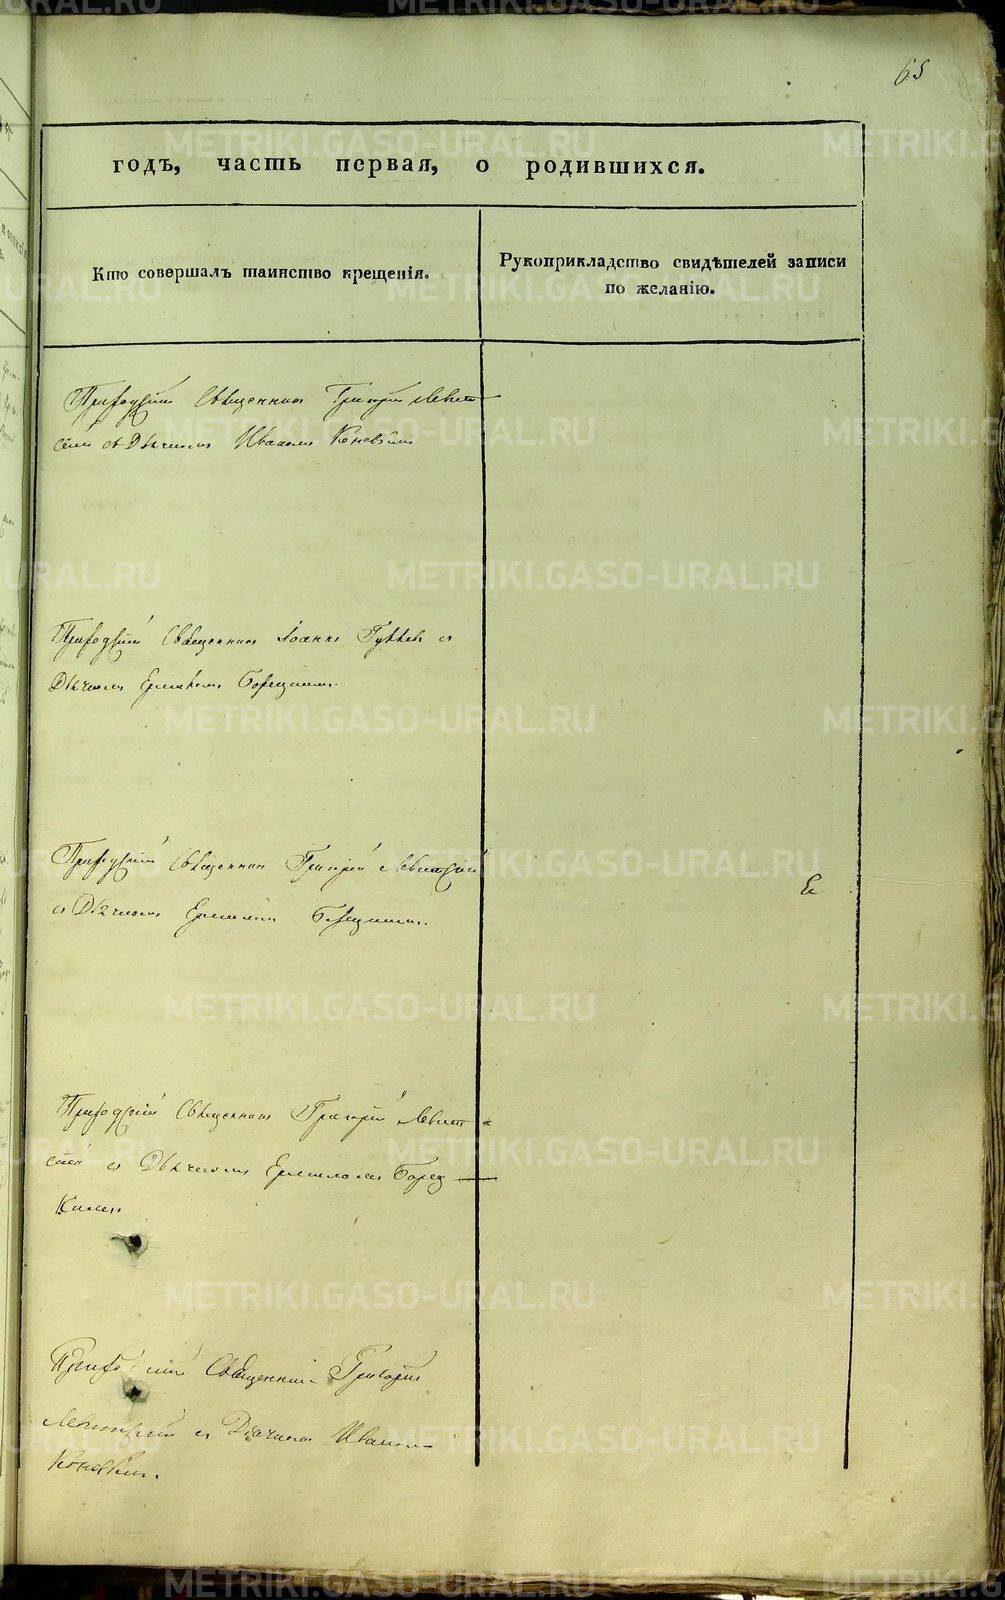 65
годъ, часть первая, о родившихся.
Кто совершалъ таинство крещенія.
Рукоприкладство свидѣтелей записи
по желанію.
Приходскій Священник Григорій Левит
скій с Дьячком Иваном Коневым
Приходскій Священник Іоанн с
Дьячком
Приходскій Священник Григорій Левитскій
с Дьячком
Приходскій Священник Григорій Левит
скій с Дьячком Ермилом
Приходскій Священник Григорій
Левитскій с Дьячком Иваном
Коневым.
METRIKI.GASO-URAL.RU